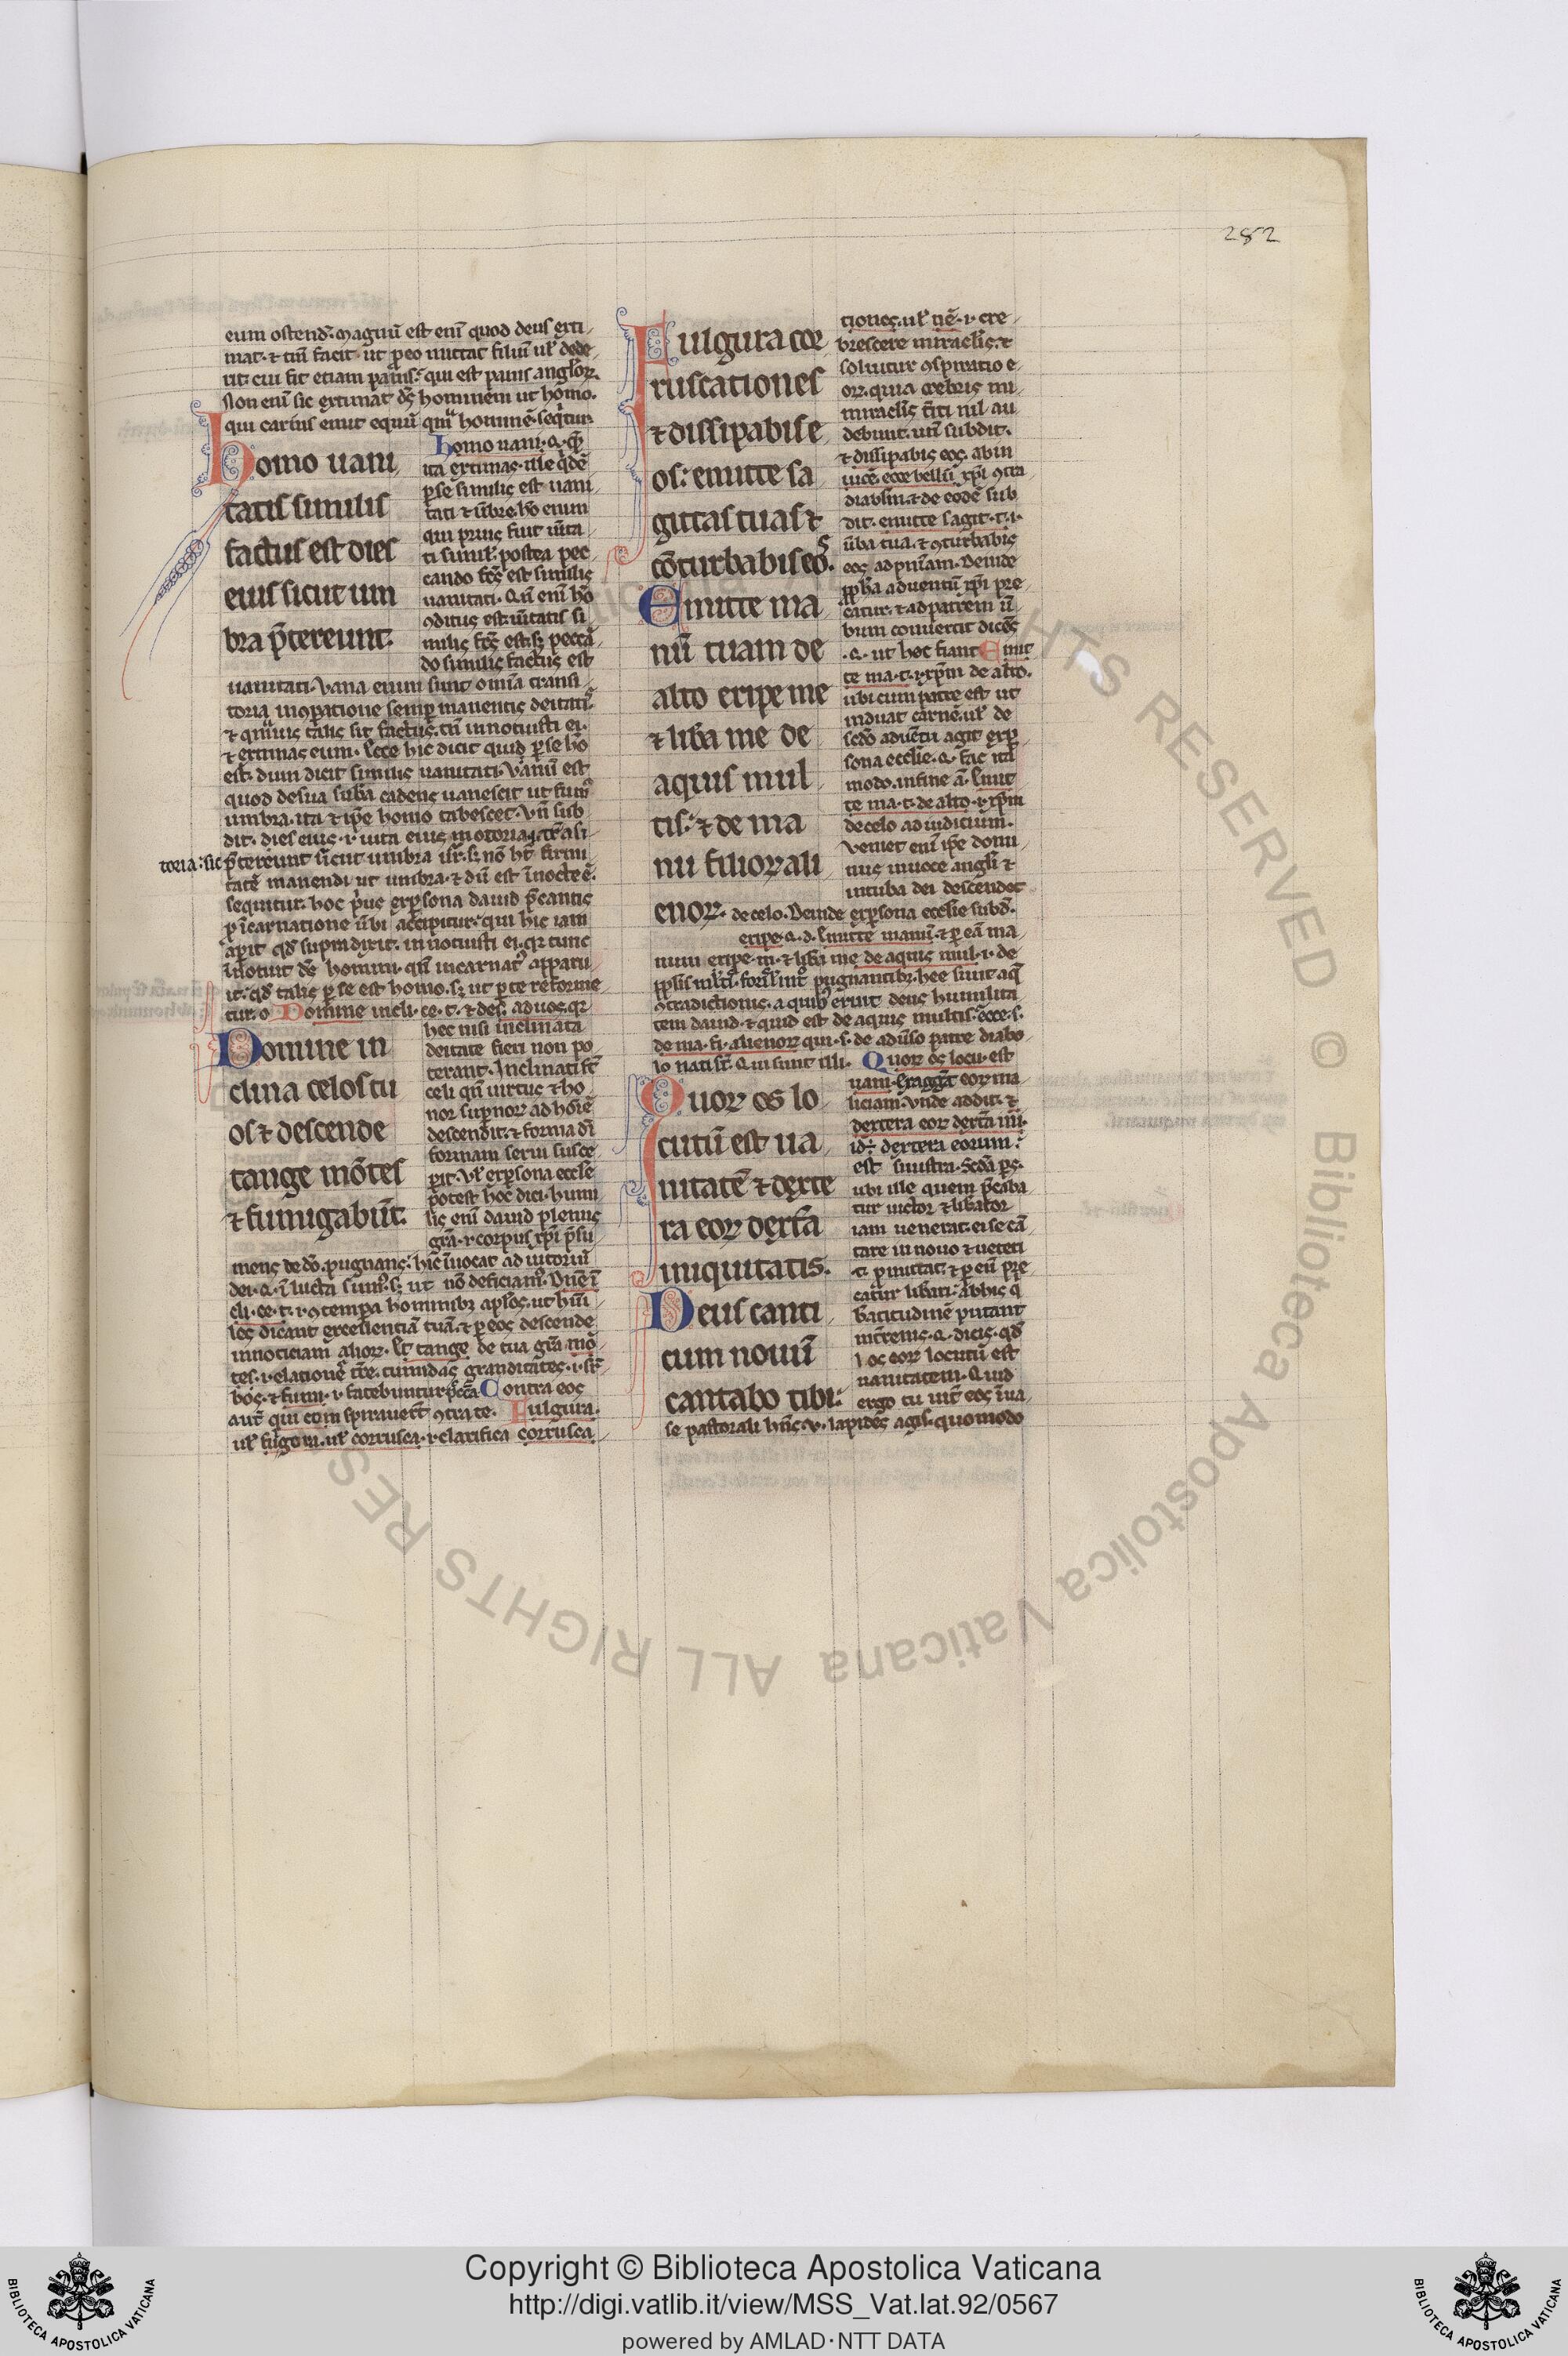 282
eum ostend᷑. magnū est enī quod deus exti
mat. ⁊ tm̄ facit ut ꝑ eo mittat filiū ul᷑ dede
rit. cui fit etiam panis. qui est panis anglorꝝ.
Non enī sic extimat ds̄ hominem ut homo.
qui carius emit equū qm̄ hominē. seqͥtur.
Homo uani
tatis similis
factus est dies
eius sicut um
bra p̄tereunt.
Homo uani. q. q̄
ita extimas. ille qͥdē
ꝑ se similis est uani
tati ⁊ ūbre. hō enim
qui prius fuit ūita
ti simil᷑. postea pec
cando fc̄s est similis
uanitati. Qn̄ enī hō
ꝯditus est. ūitatis si
milis fc̄s est. sꝫ peccā
do similis factus est
uanitati. Vana enim sunt omīa transi
toria in ꝯparatione semꝑ manentis deitatis.
⁊ qͣmuis talis sit factus. tn̄ innotuisti ei.
⁊ extimas eum. Ecce hic dicit quid ꝑ se hō
est. dum dicit similis uanitati. Vanū est
quod de sua sub̄a cadens uanescit ut fum᷒
umbra. ita ⁊ ip̄e homo tabescet. Vn̄ sub
dit. dies eius. i. uita eius motoria. ⁊ trāsi
toria: sic
p̄tereunt sicut umbra
tatē manendi ut umbra. ⁊ dū est ī nocte ē.
sequitur. hoc p̄us ex ꝑsona dauid p̄cantis
ꝑ īcarnatione ūbi accipitur. qui hic iam
aꝑit qd̄ sup̄ dixit. innotuisti ei. qꝛ tunc
īnotuit ds̄ homini. qn̄ incarnat᷒ apparu
it. qd̄ talis ꝑ se est homo. sꝫ ut ꝑ te reforme
tur. o Domine incli. ce. t. ⁊ des̄. ad uos. qꝛ
Domine in
clina celos tu
os ⁊ descende
tange mōtes
⁊ fumigabūt.
hec nisi inclinata
deitate fieri non po
terant. Inclinati st̄
celi qn̄ uirtus ⁊ ho
nor suꝑnorꝝ ad hoīē
descendit. ⁊ forma dī
formam serui susce
pit. Vl᷑ ex ꝑsona eccl̄e
potest hoc dici. humi
lis enī dauid plenus
grā. i. corpus xp̄i p̄su
mens de dō. pugnans. hic īuocat adiutoriū
dei. q. ī lucta sum᷒. sꝫ ut nō deficiam᷒. Dn̄e ī
cli. ce. t. i. ꝯtempa hominibꝫ apl̄os. ut hūi
les dicant excellentiā tuā. ⁊ ꝑ eos descende
in noticiam aliorꝝ. Et tange de tua grā mō
tes. i. elatione tr̄e. tumidas granditates. i. suꝑ
bos. ⁊ fumi. i. fatebuntur pcc̄a. Contra eos
aut᷑ qui conspirauer̄t ꝯtra te. Fulgura.
ul᷑ fugora. ul᷑ corrusca. i. clarifica corrusca
Fulgura coe
ruscationes
⁊ dissipabis e
os: emitte sa
gittas tuas ⁊
cōturbabis eos.
Emitte ma
nū tuam de
alto eripe me
⁊ lib̄a me de
aquis mul
tis: ⁊ de ma
nu filioꝝ ali
enorꝝ.
tiones. ul᷑ nē. i. cre
brescere miraclis. ⁊
soluitur ꝯspiratio e
orꝝ. quia crebris mi
miraclis t̄iti nil au
debunt. un̄ subdit.
⁊ dissipabis eos. ab in
uicē. ecce bellū xp̄i ꝯtra
diabl̄m. ⁊ de eodē sub
dit. emitte sagit. t. i.
ūba tua. ⁊ ꝯturbabis
eos ad pnīam. Deinde
ꝓph̄a aduentū xp̄i pre
catur. ⁊ ad patrem ū
bum conuertit dicēs
. q. ut hoc fiant Emit
te ma. t. i. xp̄m de alto.
ubi cum patre est ut
induat carnē. ul᷑ de
sc̄do aduētu agit ex ꝑ
sona ecclīe. q. fac ita
modo. in fine ā. Emit
te ma. t. de alto. i. xp̄m
de celo ad iudicium.
Veniet enī ip̄e domi
nus in uoce angl̄i ⁊
in tuba dei descendet
de celo. Deinde ex ꝑsona ecclīe subd᷑.
eripe. q. d. Emitte manū. ⁊ ꝑ eā ma
num eripe. m. ⁊ lib̄a me de aquis mul. i. de
ꝯtradictionis. a quibꝫ eruit deus humilita
tem dauid. ⁊ quid est de aquis multis. ecce. s.
de ma. fi. alienorꝝ qui. s. de aduīso patre diabo
lo nati st̄. Qui sunt illi. Quorꝝ os locu. est
Quoꝝ os lo
cutū est ua
nitatē ⁊ dexte
ra eoꝝ dext̄a
iniquitatis.
Deus canti
cum nouū
cantabo tibi:
uani. Exaggat᷑ eoꝝ ma
liciam. Vnde addit. ⁊
dextera eor dext̄a ini.
id: dextera eorum.
est sinistra. Sc̄da ps.
ubi ille quem p̄caba
tur uictor ⁊ lib̄ator
iam uenerat. ei se cā
tare in nouo ⁊ ueteri
t. ꝓmittat. ⁊ ꝑ eū pre
catur lib̄ari. ab his q
b̄atitudinē putant
int̄renis. q. dicis. qd̄
os eorꝝ locutū est
uanitatem. Quid
ergo tu uit̄ eos ī ua
se pastorali hn̄s. v. lapides agis. quomodo
ALL RIGHTS RESERVED © Biblioteca Apostolica Vaticana
Copyright © Biblioteca Apostolica Vaticana
http://digi.vatlib.it/view/MSS_Vat.lat.92/0567
powered by AMLAD·NTT DATA
BIBLIOTECA APOSTOLICA VATICANA
BIBLIOTECA APOSTOLICA VATICANA